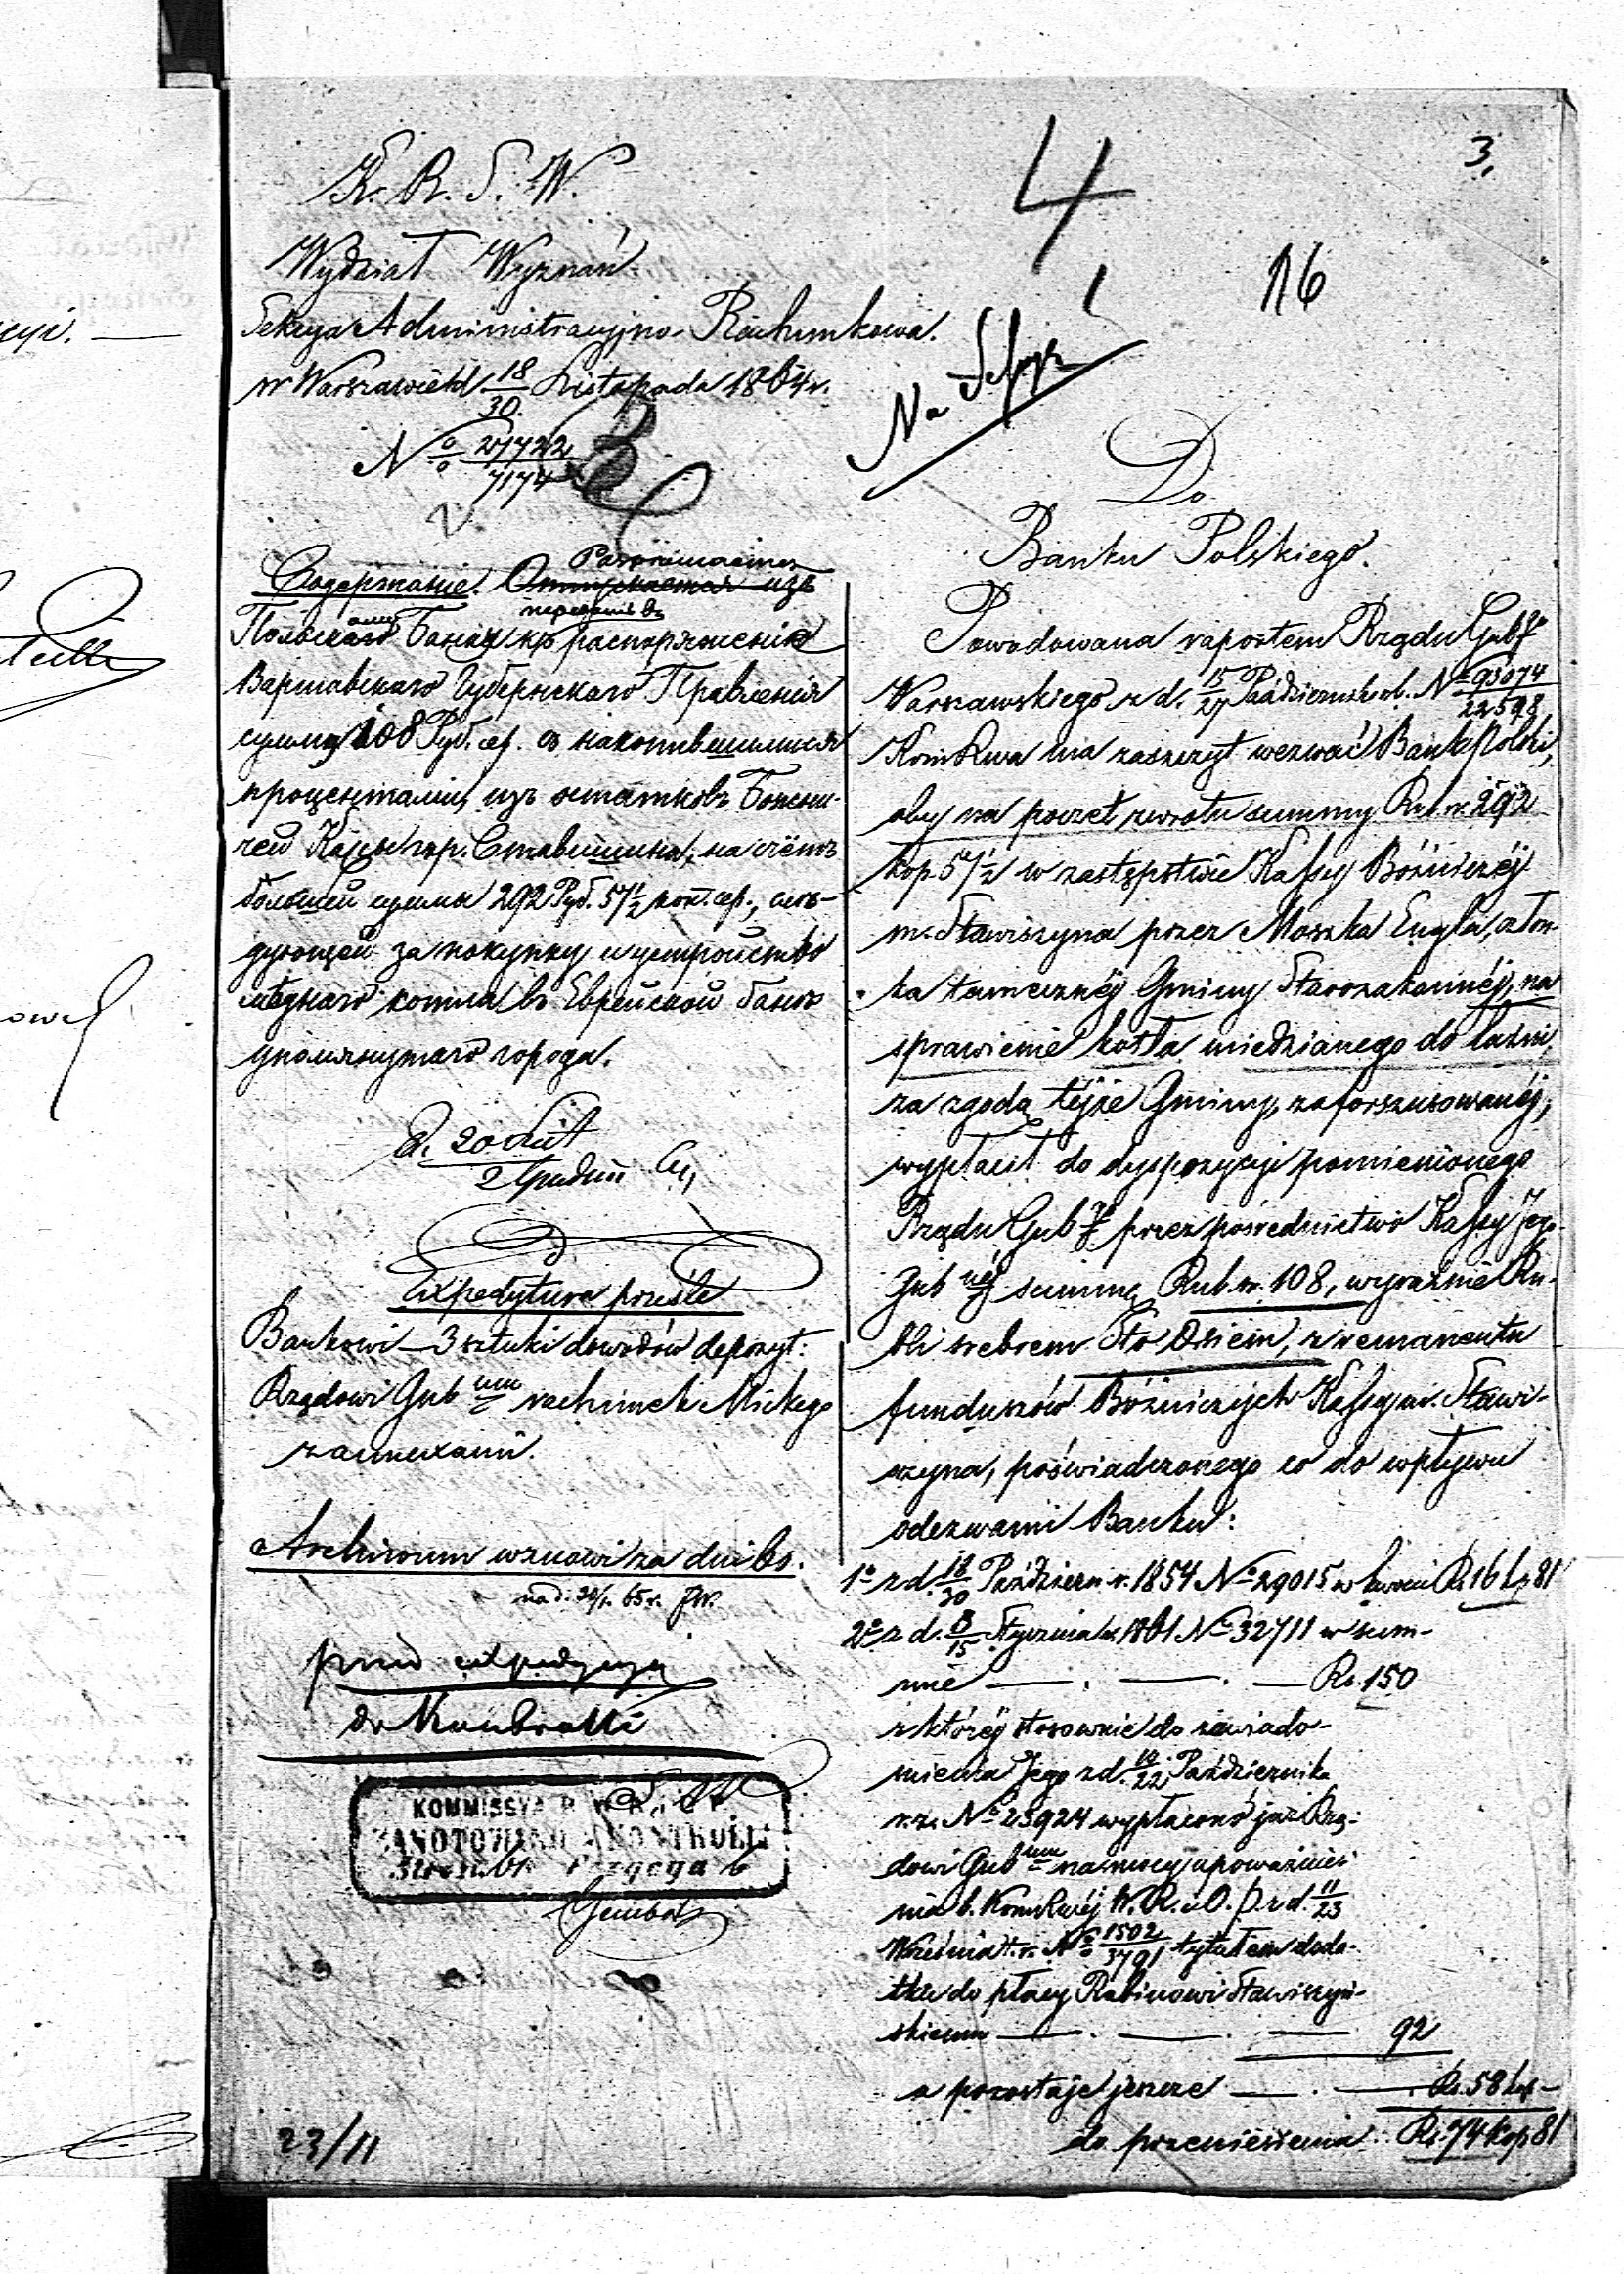 3.
4
16
K. R. S. W.
Wydział Wyznań.
Sekcya Administracyjno-Rachunkowa.
w Warszawie d. 18/30 Listopada 1864 r.
No 27722/7174
Na
Do
Banku Polskiego.
Содержаніе. Отпускается изъ
Польскаго Банка къ распоряженію
Варшавскаго Губернскаго Правленія
сумму 108 Руб. сер. съ накопившимися
процентами, изъ остатковъ Божни-
чей Кассы гор. Ставишина, на счётъ
большей суммы 292 Руб. 57½ коп. сер., слѣ-
дующей за покупку и устройство
мѣднаго котла въ Еврейской банѣ
упомянутаго города.
Expedytura prześle
Bankowi — 3 sztuki dowodów depozyt:
Rządowi Gub um rachunek Mickego
z annexami.
Archiwum wznowi za dni 60.
przed expedycyą
do Kontrolli
KOMMISSYA R.
ZANOTOWANO W KONTROLLI
23/11
Powodowana raportem Rządu Gub go
Warszawskiego z d. 15/27 Październik rb. No 93074/22598
Kom Rwa ma zaszczyt wezwać Bank Polski,
aby na poczet zwrotu summy Rub. sr. 292
kop. 57½ w zastępstwie Kassy Bóżniczéj
m. Stawiszyna przez Moszka Engla, człon-
ka tamecznéj Gminy Starozakonnéj, na
sprawienie kotła miedzianego do łaźni,
za zgodą téjże Gminy, zaforszusowanéj,
wypłacił do dyspozycyi pomienionego
Rządu Gub go przez pośrednictwo Kassy Jego
Gub néj summę Rub. sr. 108, wyraźnie Ru-
bli srebrem Sto Osiem, z remanentu
funduszów Bóżniczych Kassy m. Stawi-
szyna, poświadczonego co do wpływu
odezwami Banku:
1o z d. 18/30 Październ. r. 1854 No 29015 w kwocie Rs. 16 k. 81
2o z d. 3/15 Stycznia r. 1861 No 32711 w sum-
mie — . — . — Rs. 150
z któréj stosownie do zawiado-
mienia Jego z d. 10/22 Października
r. z. No 25924 wypłacono już Rzą-
dowi Gub um na mocy upoważnie-
nia b. Kom Rwéj W. R. i O. P. z d. 11/23
Września t. r. No 1502/3791 tytułem doda-
tku do płacy Rabinowi Stawiszyń-
skiemu — . — . — 92
a pozostaje jeszcze — . — . Rs. 58 kop —
do przeniesienia Rs. 74 kop 81